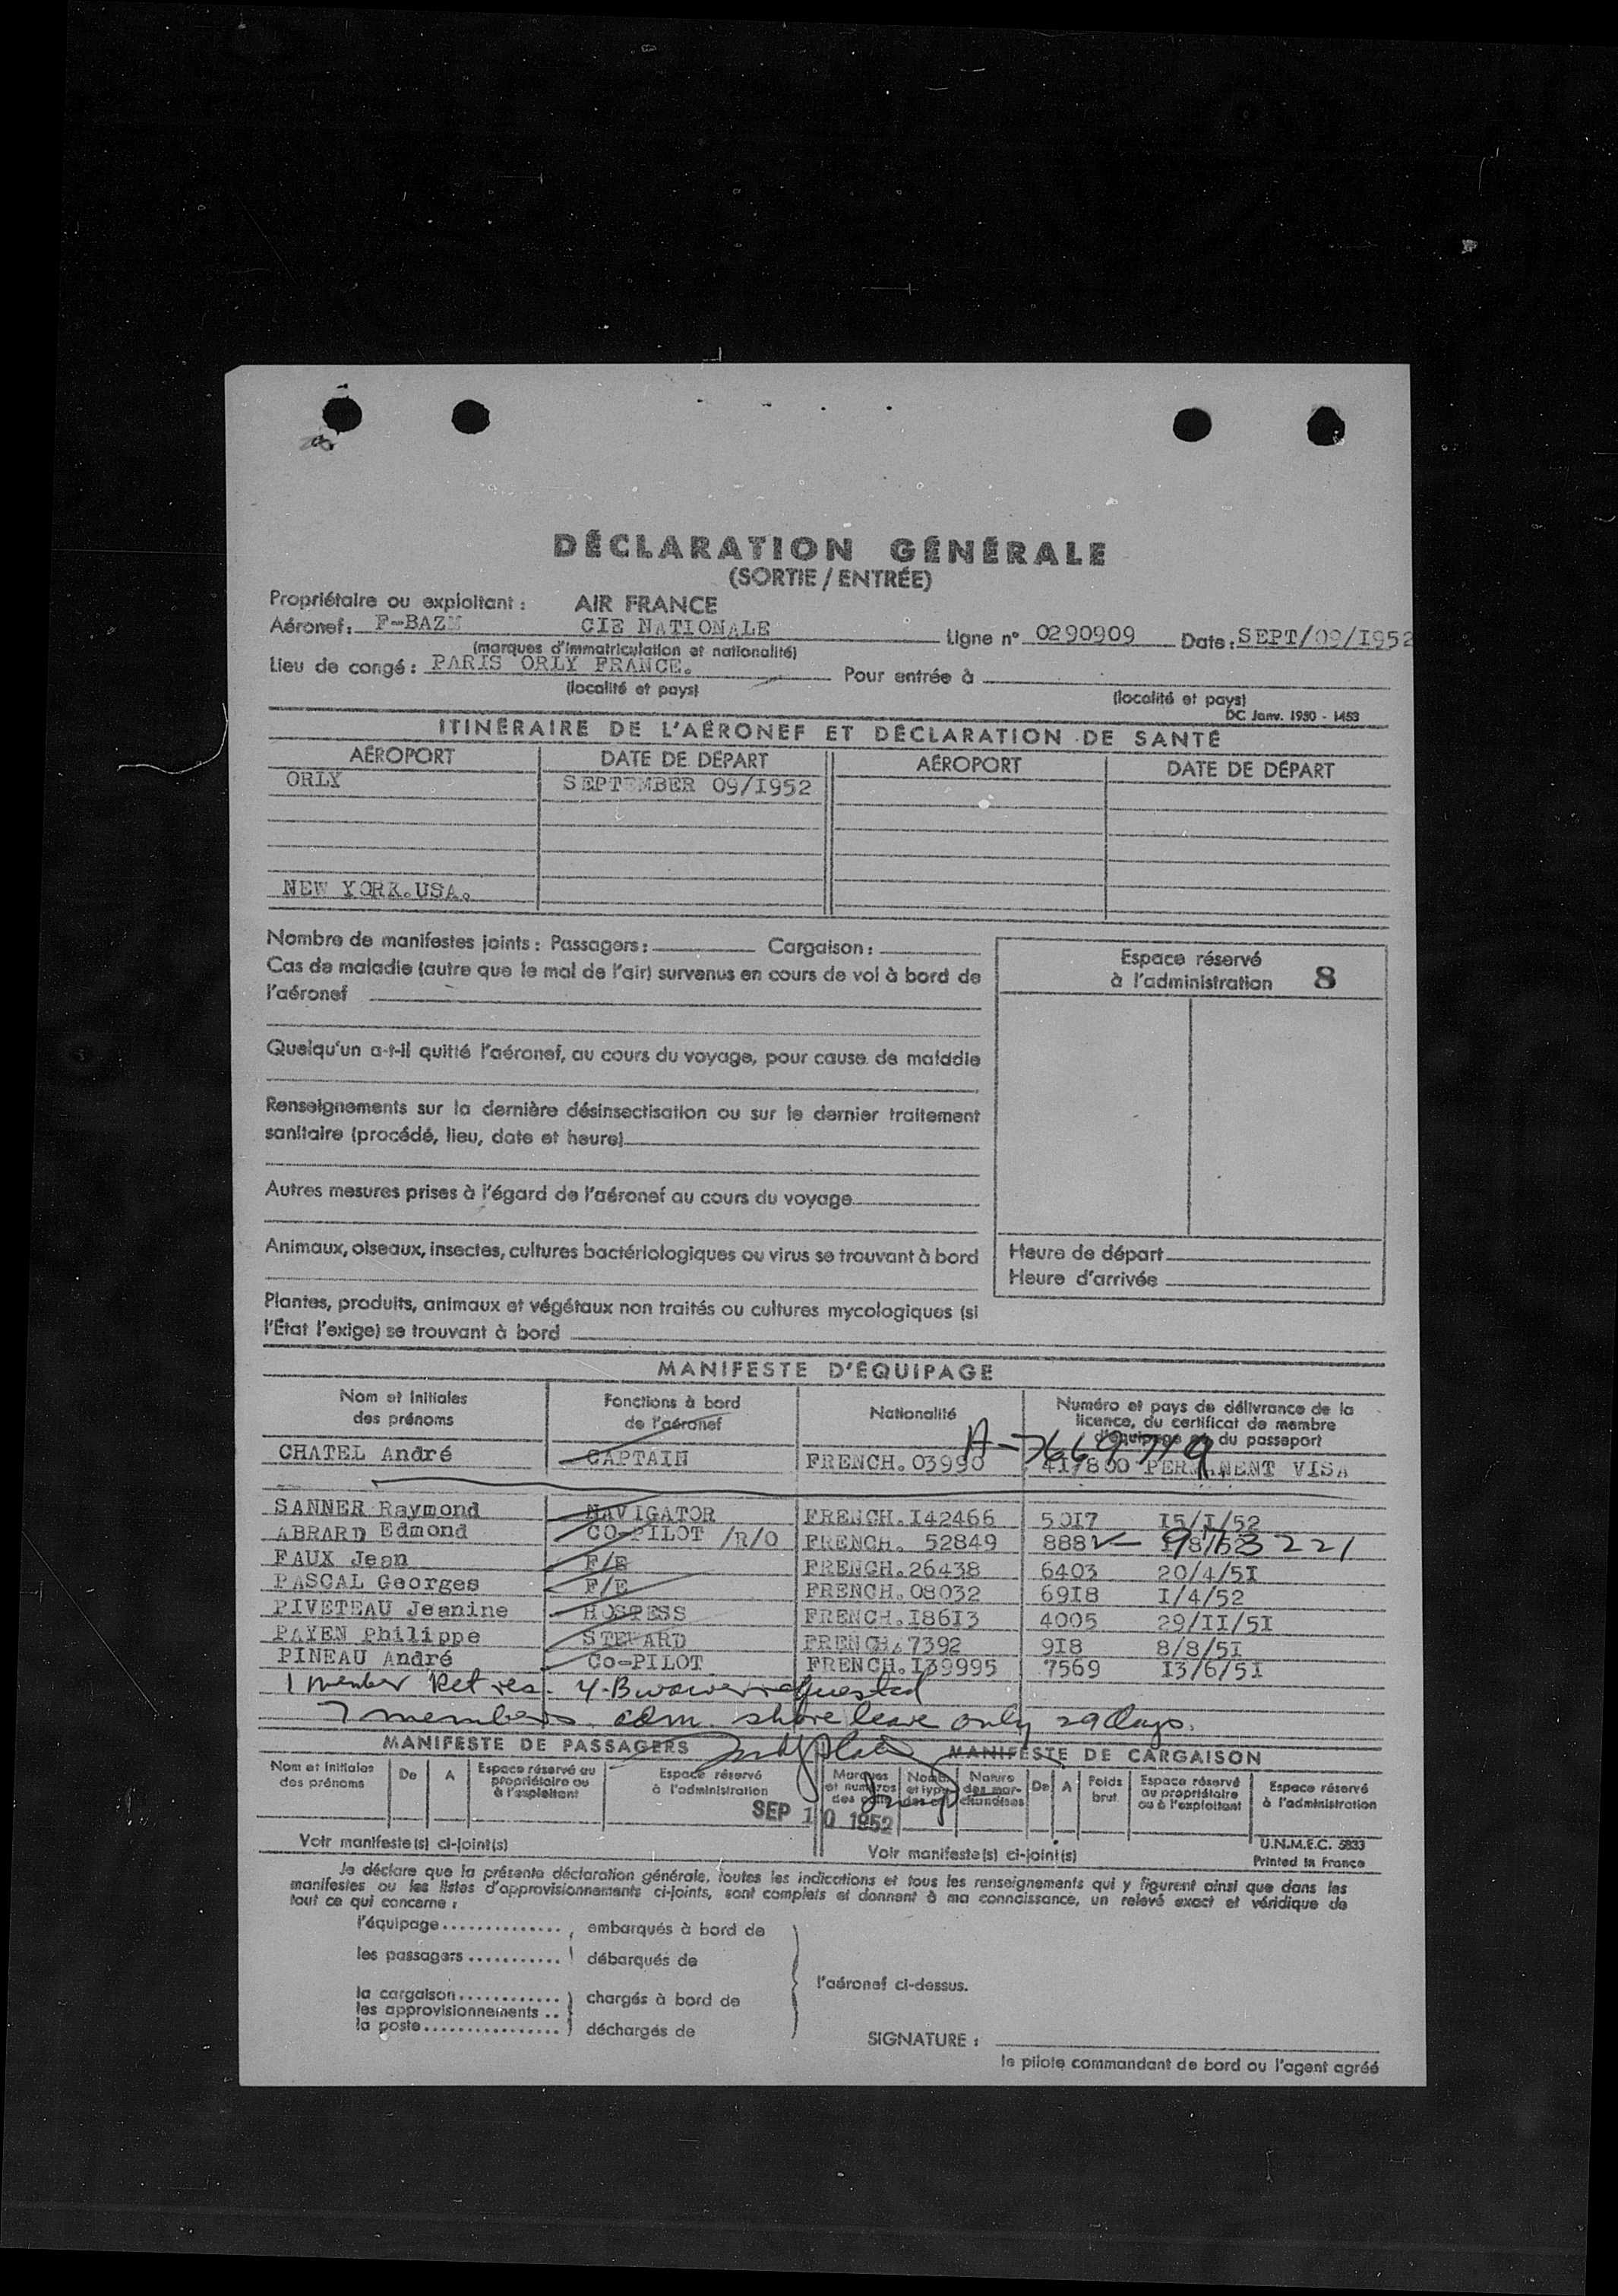 DÉCLARATION GÉNÉRALE
(SORTIE / ENTRÉE)
Propriétaire ou exploitant : AIR FRANCE
Aéronef : F-BAZM CIE NATIONALE Ligne n° 0290909 Date : SEPT/09/I952
(marques d'immatriculation et nationalité)
Lieu de congé : PARIS ORLY FRANCE. Pour entrée à
(localité et pays) (localité et pays)
DC Janv. 1950 - 1453
ITINÉRAIRE DE L'AÉRONEF ET DÉCLARATION DE SANTÉ
AÉROPORT DATE DE DÉPART AÉROPORT DATE DE DÉPART
ORLY SEPTEMBER 09/I952
NEW YORK.USA.
Nombre de manifestes joints : Passagers : Cargaison :
Cas de maladie (autre que le mal de l'air) survenus en cours de vol à bord de
l'aéronef
Espace réservé
à l'administration 8
Quelqu'un a-t-il quitté l'aéronef, au cours du voyage, pour cause de maladie
Renseignements sur la dernière désinsectisation ou sur le dernier traitement
sanitaire (procédé, lieu, date et heure)
Autres mesures prises à l'égard de l'aéronef au cours du voyage
Animaux, oiseaux, insectes, cultures bactériologiques ou virus se trouvant à bord
Heure de départ
Heure d'arrivée
Plantes, produits, animaux et végétaux non traités ou cultures mycologiques (si
l'État l'exige) se trouvant à bord
MANIFESTE D'ÉQUIPAGE
Nom et initiales des prénoms
Fonctions à bord de l'aéronef
Nationalité
Numéro et pays de délivrance de la
licence, du certificat de membre
d'équipage ou du passeport
A-7669719
CHATEL André CAPTAIN FRENCH.03990 417800 PERMANENT VISA
SANNER Raymond NAVIGATOR FRENCH.I42466 5017 I5/I/52
ABRARD Edmond CO-PILOT /R/O FRENCH. 52849 888
FAUX Jean F/E FRENCH.26438 6403 20/4/5I
PASCAL Georges F/E FRENCH.08032 69I8 I/4/52
PIVETEAU Jeanine HOSTESS FRENCH.I86I3 4005 29/II/5I
PAYEN Philippe STEWARD FRENCH.7392 9I8 8/8/5I
PINEAU André Co-PILOT FRENCH.I39995 7569 I3/6/5I
1 member Ret res. 4-B waiver requested
7 members adm. shore leave only 29 days.
MANIFESTE DE PASSAGERS MANIFESTE DE CARGAISON
Nom et initiales des prénoms
De A
Espace réservé au propriétaire ou à l'exploitant
Espace réservé à l'administration
Marques et numéros des colis
Nature des marchandises
De A
Poids brut
Espace réservé au propriétaire ou à l'exploitant
Espace réservé à l'administration
SEP 10 1952
Voir manifeste(s) ci-joint(s) Voir manifeste(s) ci-joint(s)
U.N.M.E.C. 5833
Printed in France
Je déclare que la présente déclaration générale, toutes les indications et tous les renseignements qui y figurent ainsi que dans les
manifestes ou les listes d'approvisionnements ci-joints, sont complets et donnent à ma connaissance, un relevé exact et véridique de
tout ce qui concerne :
l'équipage.............. embarqués à bord de
les passagers........... débarqués de
l'aéronef ci-dessus.
la cargaison............ chargés à bord de
les approvisionnements ..
la poste................ déchargés de
SIGNATURE :
le pilote commandant de bord ou l'agent agréé